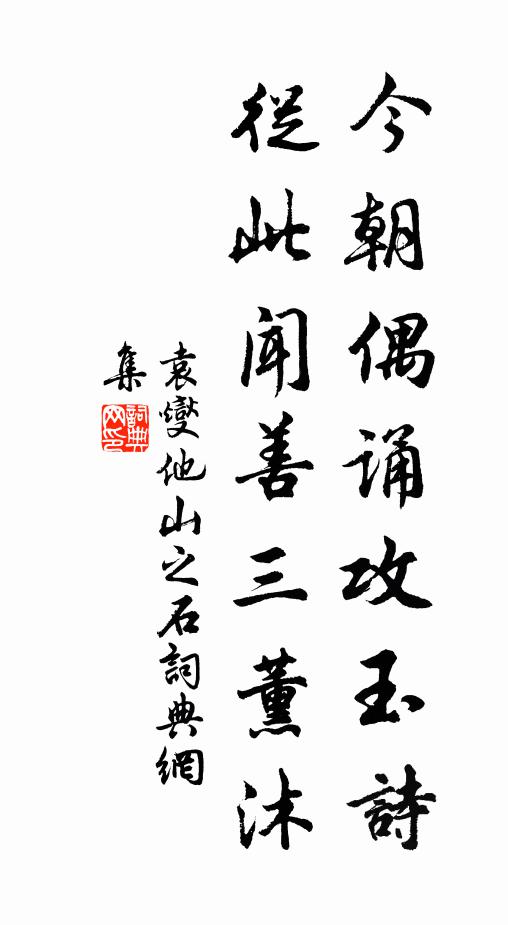 今朝偶诵攻玉詩
從此聞善三薰沐
袁燮他山之石詞典網
集
詞典
网印